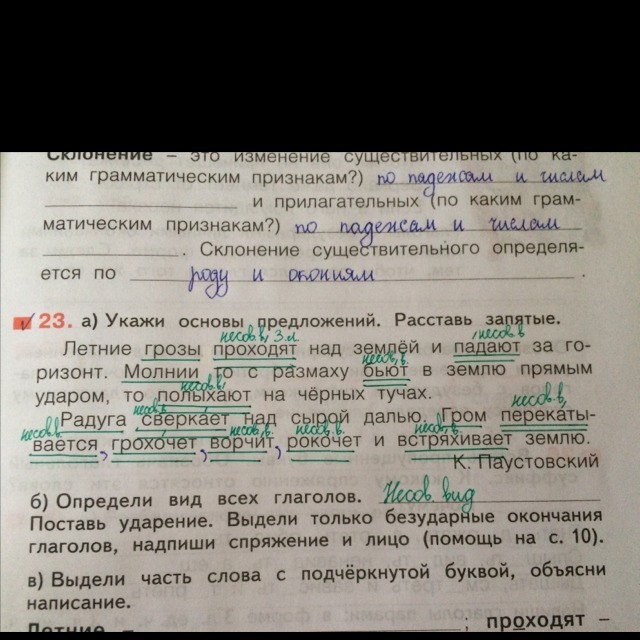 Склонение – это изменение существительных (по ка-
ким грамматическим признакам?) по падежам и числам
и прилагательных (по каким грам-
матическим признакам?) по падежам и числам
. Склонение существительного определя-
ется по роду и окониям .
23. а) Укажи основы предложений. Расставь запятые.
несов.в, 3 л. несов.в
Летние грозы проходят над землёй и падают за го-
несов.в.
ризонт. Молнии то с размаху бьют в землю прямым
несов.в.
ударом, то полыхают на чёрных тучах.
несов.в. несов.в,
Радуга сверкает над сырой далью. Гром перекаты-
несов.в. несов.в. несов.в. несов.в. несов.в.
вается, грохочет, ворчит, рокочет и встряхивает землю.
К. Паустовский
б) Определи вид всех глаголов. Несов. вид
Поставь ударение. Выдели только безударные окончания
глаголов, надпиши спряжение и лицо (помощь на с. 10).
в) Выдели часть слова с подчёркнутой буквой, объясни
написание.
Летние – ; проходят –